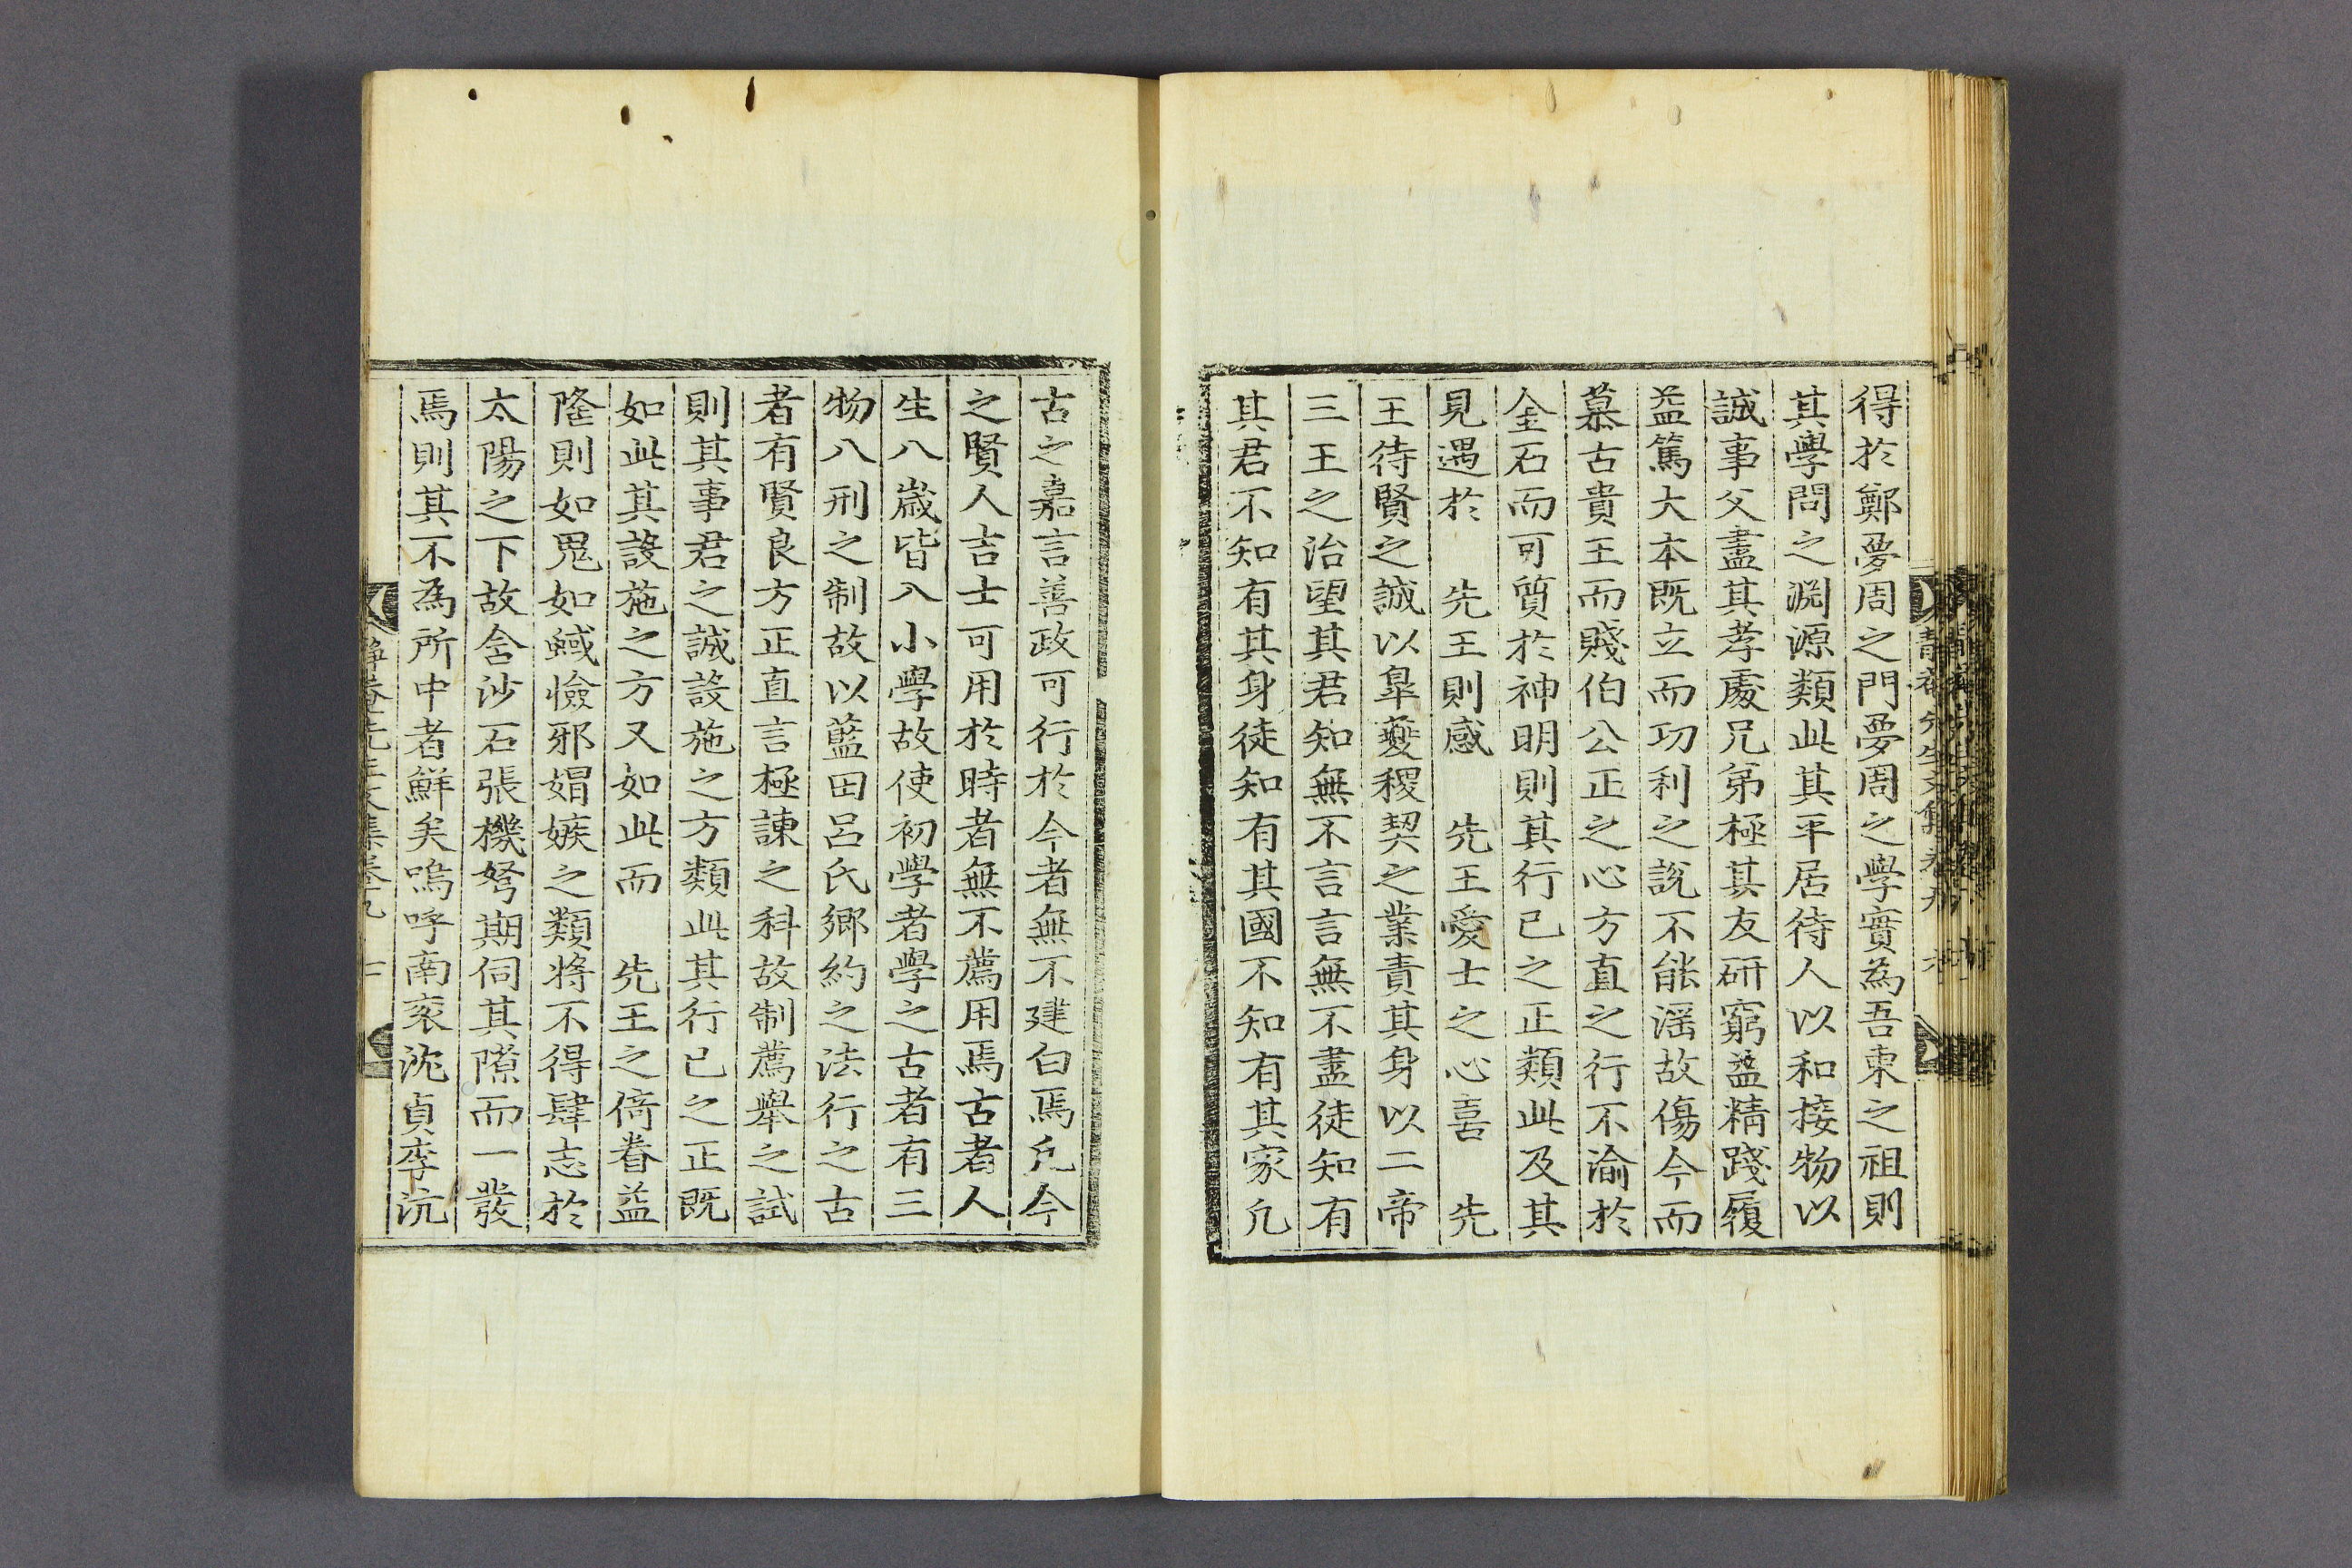 得於鄭夢周之門夢周之學實為吾東之祖則
其學問之淵源類此其平居待人以和接物以
誠事父盡其孝處兄弟極其友研窮益精踐履
益篤大本既立而功利之說不能滛故傷今而
慕古貴王而賤伯公正之心方直之行不渝於
金石而可質於神明則其行已之正類此及其
見遇於　先王則感　先王愛士之心喜　先
王待賢之誠以皐夔稷契之業責其身以二帝
三王之治望其君知無不言言無不盡徒知有
其君不知有其身徒知有其國不知有其家凢
古之嘉言善政可行於今者無不建白焉凢今
之賢人吉士可用於時者無不薦用焉古者人
生八歲皆入小學故使初學者學之古者有三
物八刑之制故以藍田呂氏鄉約之法行之古
者有賢良方正直言極諫之科故制薦舉之試
則其事君之誠設施之方類此其行已之正既
如此其設施之方又如此而　先王之倚眷益
隆則如鬼如蜮憸邪媢嫉之類將不得肆志於
太陽之下故含沙石張機弩期伺其隙而一發
焉則其不為所中者鮮矣嗚呼南袞沈貞李沆
靜菴先生文集卷之九